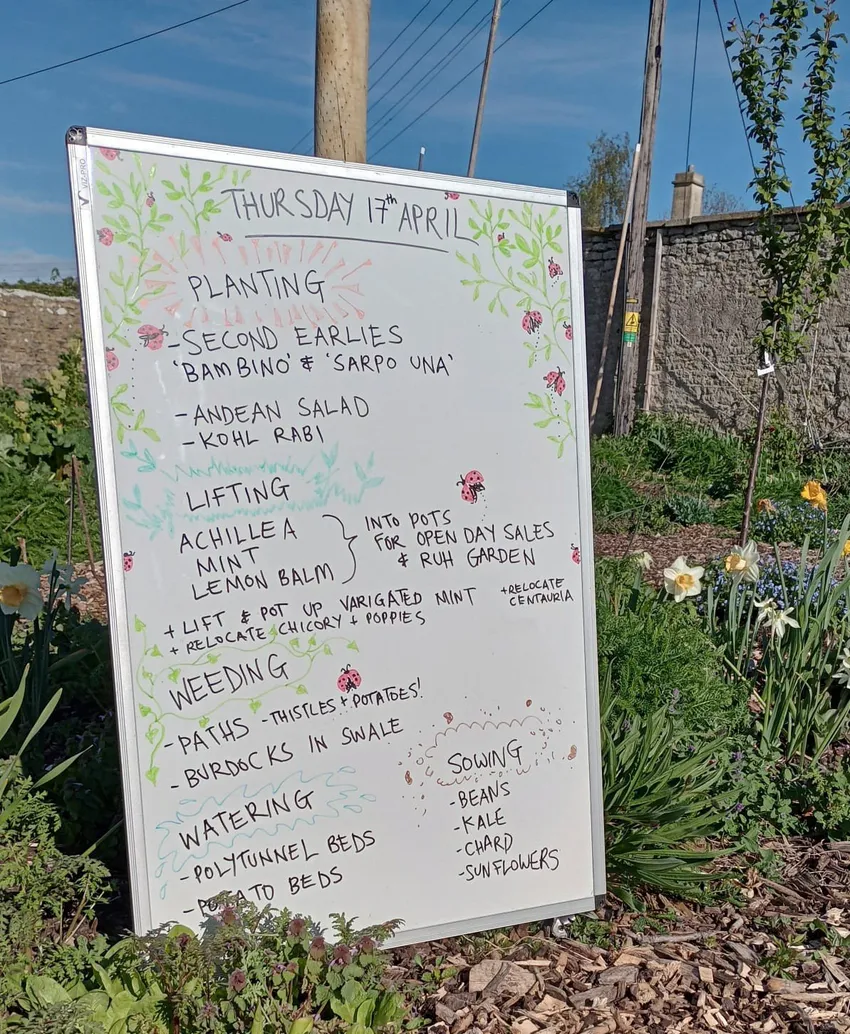 THURSDAY 17th APRIL
PLANTING
- SECOND EARLIES
'BAMBINO' & 'SARPO UNA'
- ANDEAN SALAD
- KOHL RABI
LIFTING
ACHILLEA
MINT
LEMON BALM
INTO POTS
FOR OPEN DAY SALES
& RUH GARDEN
+ LIFT & POT UP VARIGATED MINT
+ RELOCATE CHICORY + POPPIES
+ RELOCATE
CENTAURIA
WEEDING
- PATHS - THISTLES + POTATOES!
- BURDOCKS IN SWALE
WATERING
- POLYTUNNEL BEDS
- POTATO BEDS
SOWING
- BEANS
- KALE
- CHARD
- SUNFLOWERS